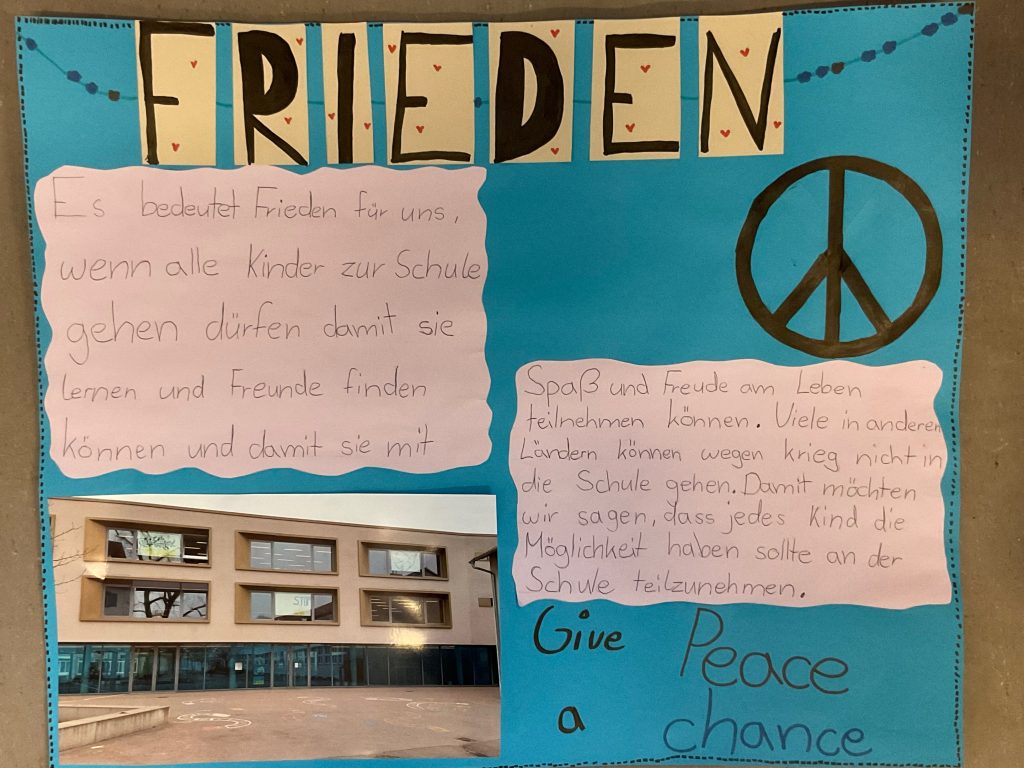 FRIEDEN
Es bedeutet Frieden für uns,
wenn alle Kinder zur Schule
gehen dürfen damit sie
lernen und Freunde finden
können und damit sie mit
Spaß und Freude am Leben
teilnehmen können. Viele in anderen
Ländern können wegen krieg nicht in
die Schule gehen. Damit möchten
wir sagen, dass jedes Kind die
Möglichkeit haben sollte an der
Schule teilzunehmen.
Give Peace
a chance